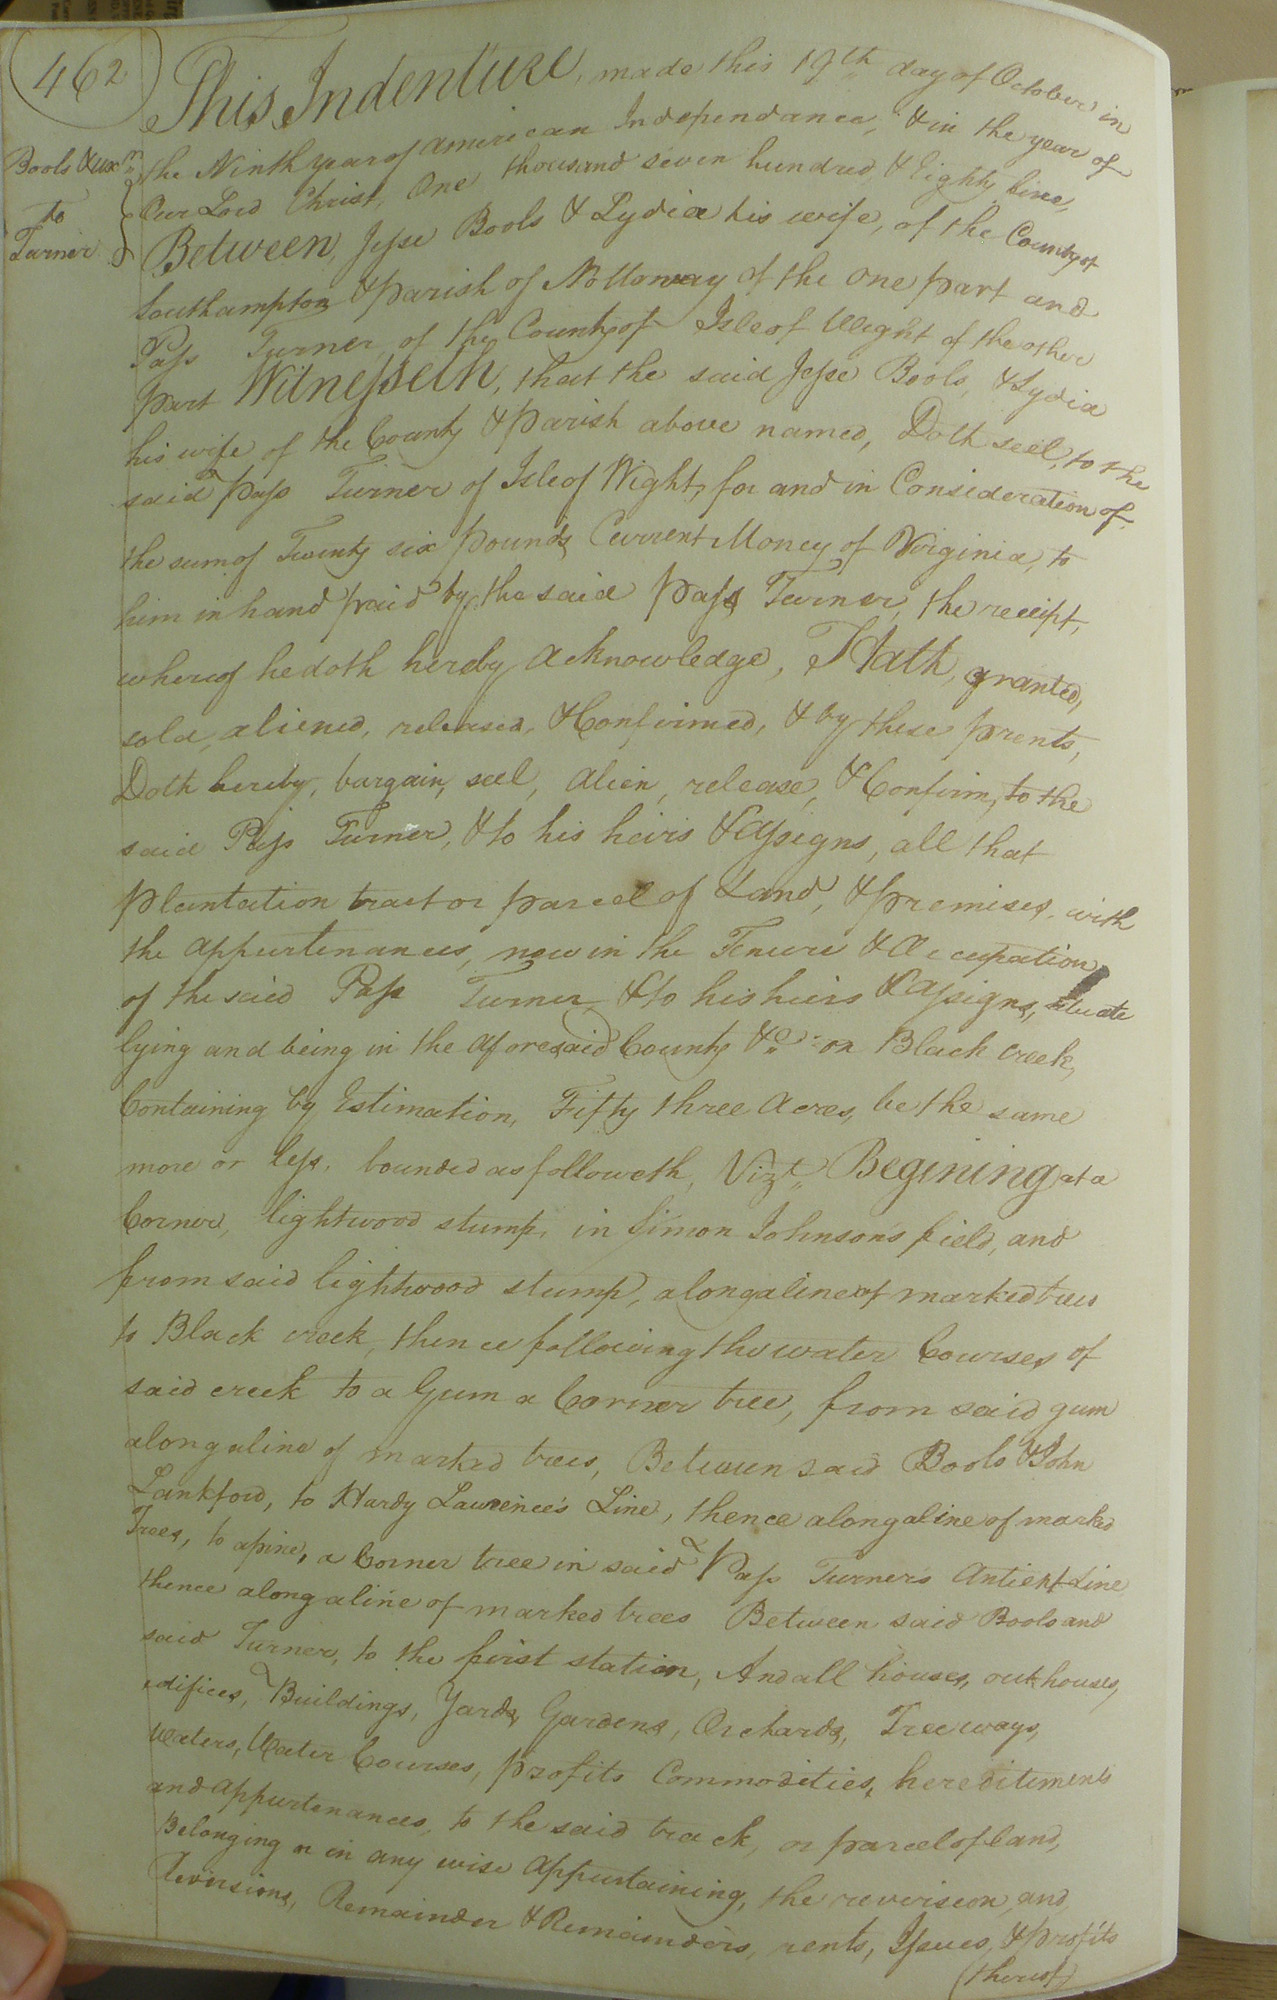 462
This Indenture, made this 19th day of October in
the Ninth year of American Independance, & in the year of
Our Lord Christ, One thousand seven hundred & Eighty five,
Bools & uxr
to
Turner
Between Jesse Bools & Lydia his wife, of the County of
Southampton & parish of Nottoway of the one part and
Pass Turner of the County of Isle of Wight of the other
part Witnesseth, that the said Jesse Bools, & Lydia
his wife of the County & parish above named, Doth seel, to the
said Pass Turner of Isle of Wight, for and in Consideration of
the sum of Twenty six pounds Current Money of Virginia, to
him in hand paid by the said Pass Turner, the receipt,
whereof he doth hereby acknowledge, Hath, granted,
sold, aliened, released, & Confirmed, & by these prents,
Doth hereby, bargain, seel, alien, release, & Confirm, to the
said Pass Turner, & to his heirs & assigns, all that
plantation tract or parcel of Land, & premises, with
the appurtenances, now in the Tenure & Occupation
of the said Pass Turner & to his heirs & assigns, situate
lying and being in the aforesaid County &c. on Black creek,
Containing by Estimation, Fifty three Acres, be the same
more or less, bounded as followeth, Vizt. Begining at a
Corner, lightwood stump, in Simon Johnson's field, and
from said lightwood stump, along a line of marked trees
to Black creek, thence following the water Courses of
said creek to a Gum a Corner tree, from said gum
along a line of marked trees, Between said Bools & John
Lankford, to Hardy Lawrence's Line, thence along a line of marked
Trees, to a pine, a Corner tree in said Pass Turners Antient Line
thence along a line of marked trees Between said Bools and
said Turner, to the first station, And all houses, outhouses,
edifices, Buildings, Yards, Gardens, Orchards, Treeways,
Waters, Water Courses, profits Commodities, herediterments
and appurtenances, to the said track, or parcel of land,
Belonging or in any wise appurtaining, the reversion and,
Reversions, Remainder & Remainders, rents, Issues, & profits
(thereof)